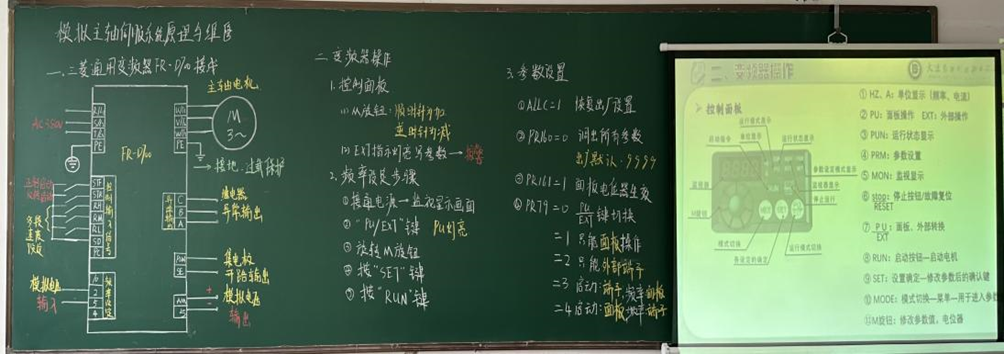 模拟主轴伺服系统原理与维修
一、三菱通用变频器FR-D700接线
主轴电机
M
3~
AC380V
PE
PE
FR-D700
接地:过载保护
继电器
异常输出
C
B
A
STF
STR
RH
RM
RL
SD
PC
控制输入信号
多段速度
集电极
开路输出
RUN
SE
模拟电压
输入
10
2
5
4
频率设定
AM
5
+
-
模拟电压
输出
二、变频器操作
1.控制面板
(1)M旋钮:顺时针为加
逆时针为减
(2)EXT指示灯亮
2.频率设定步骤
①接通电源→监视显示画面
②"PU/EXT"键 PU灯亮
③旋转M旋钮
④按"SET"键
⑤按"RUN"键
3.参数设置
①ALLC=1 恢复出厂设置
②PR160=0 调出所有参数
出厂默认:9999
③PR161=1 面板电位器生效
④PR79=0 PU/EXT键切换
=1 只能面板操作
=2 只能外部端子
=3 启动:端子,频率:面板
=4 启动:面板,频率:端子
二、变频器操作
控制面板
运行模式显示
单位显示
运行状态显示
参数设定模式显示
监视器显示
停止运行
监视器
M旋钮
模式切换
各设定的确定
运行模式切换
启动指令
① HZ、A:单位显示(频率、电流)
② PU:面板操作 EXT:外部操作
③ PUN:运行状态显示
④ PRM:参数设置
⑤ MON:监视显示
⑥ stop:停止按钮/故障复位
RESET
⑦ PU:面板、外部转换
EXT
⑧ RUN:启动按钮—启动电机
⑨ SET:设置确定—修改参数后的确认键
⑩ MODE:模式切换—菜单—用于进入参数
⑪M旋钮:修改参数值,电位器